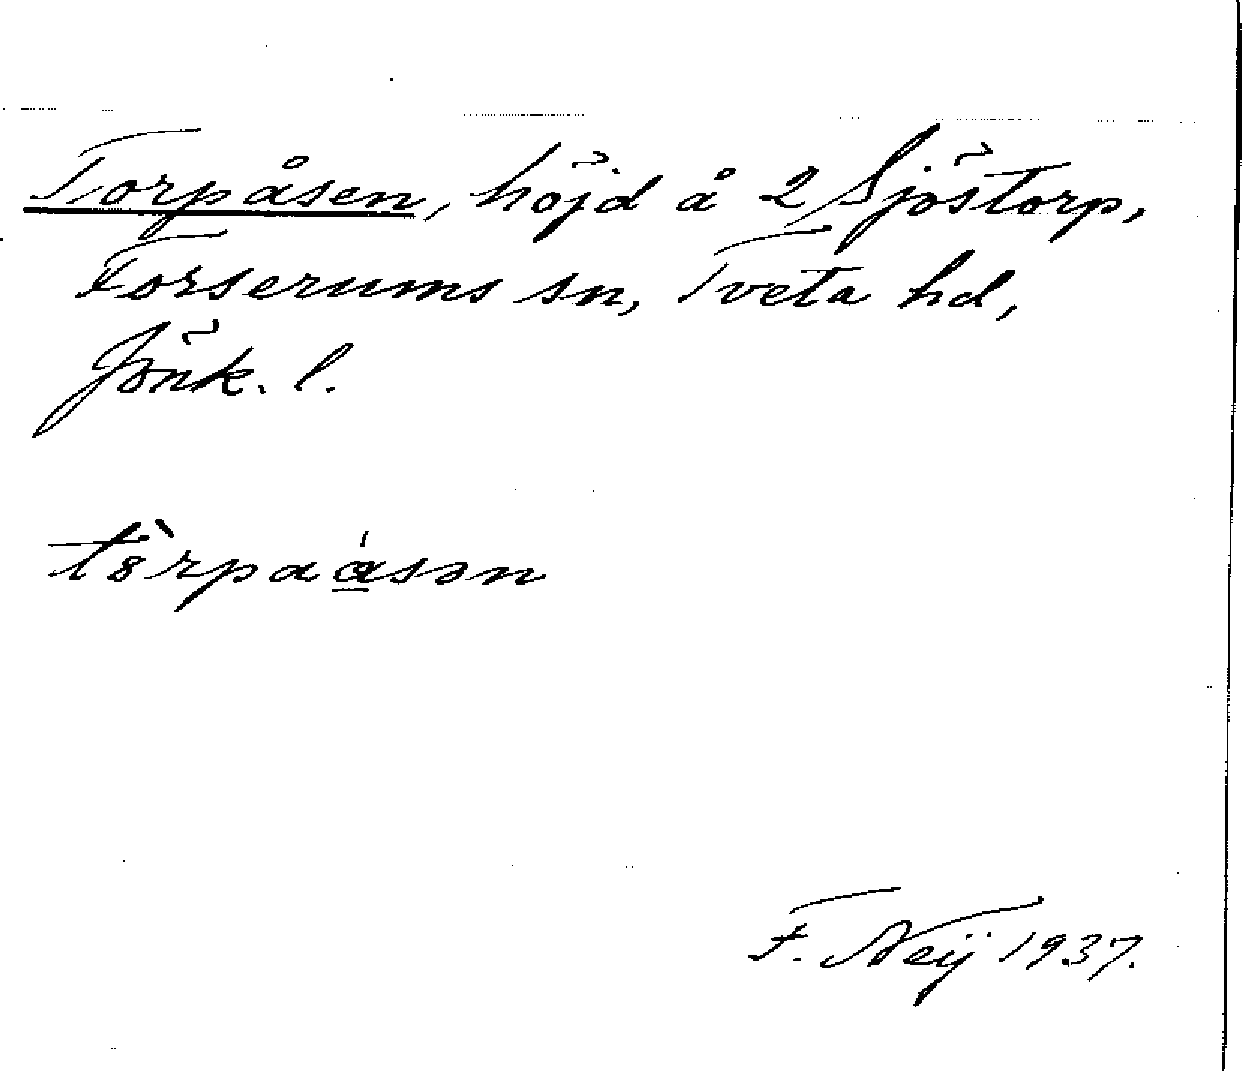 Torpåsen, höjd å 2 Sjöstorp,
Forserums sn, Tveta hd,
Jönk. l.
F. Neij 1937.